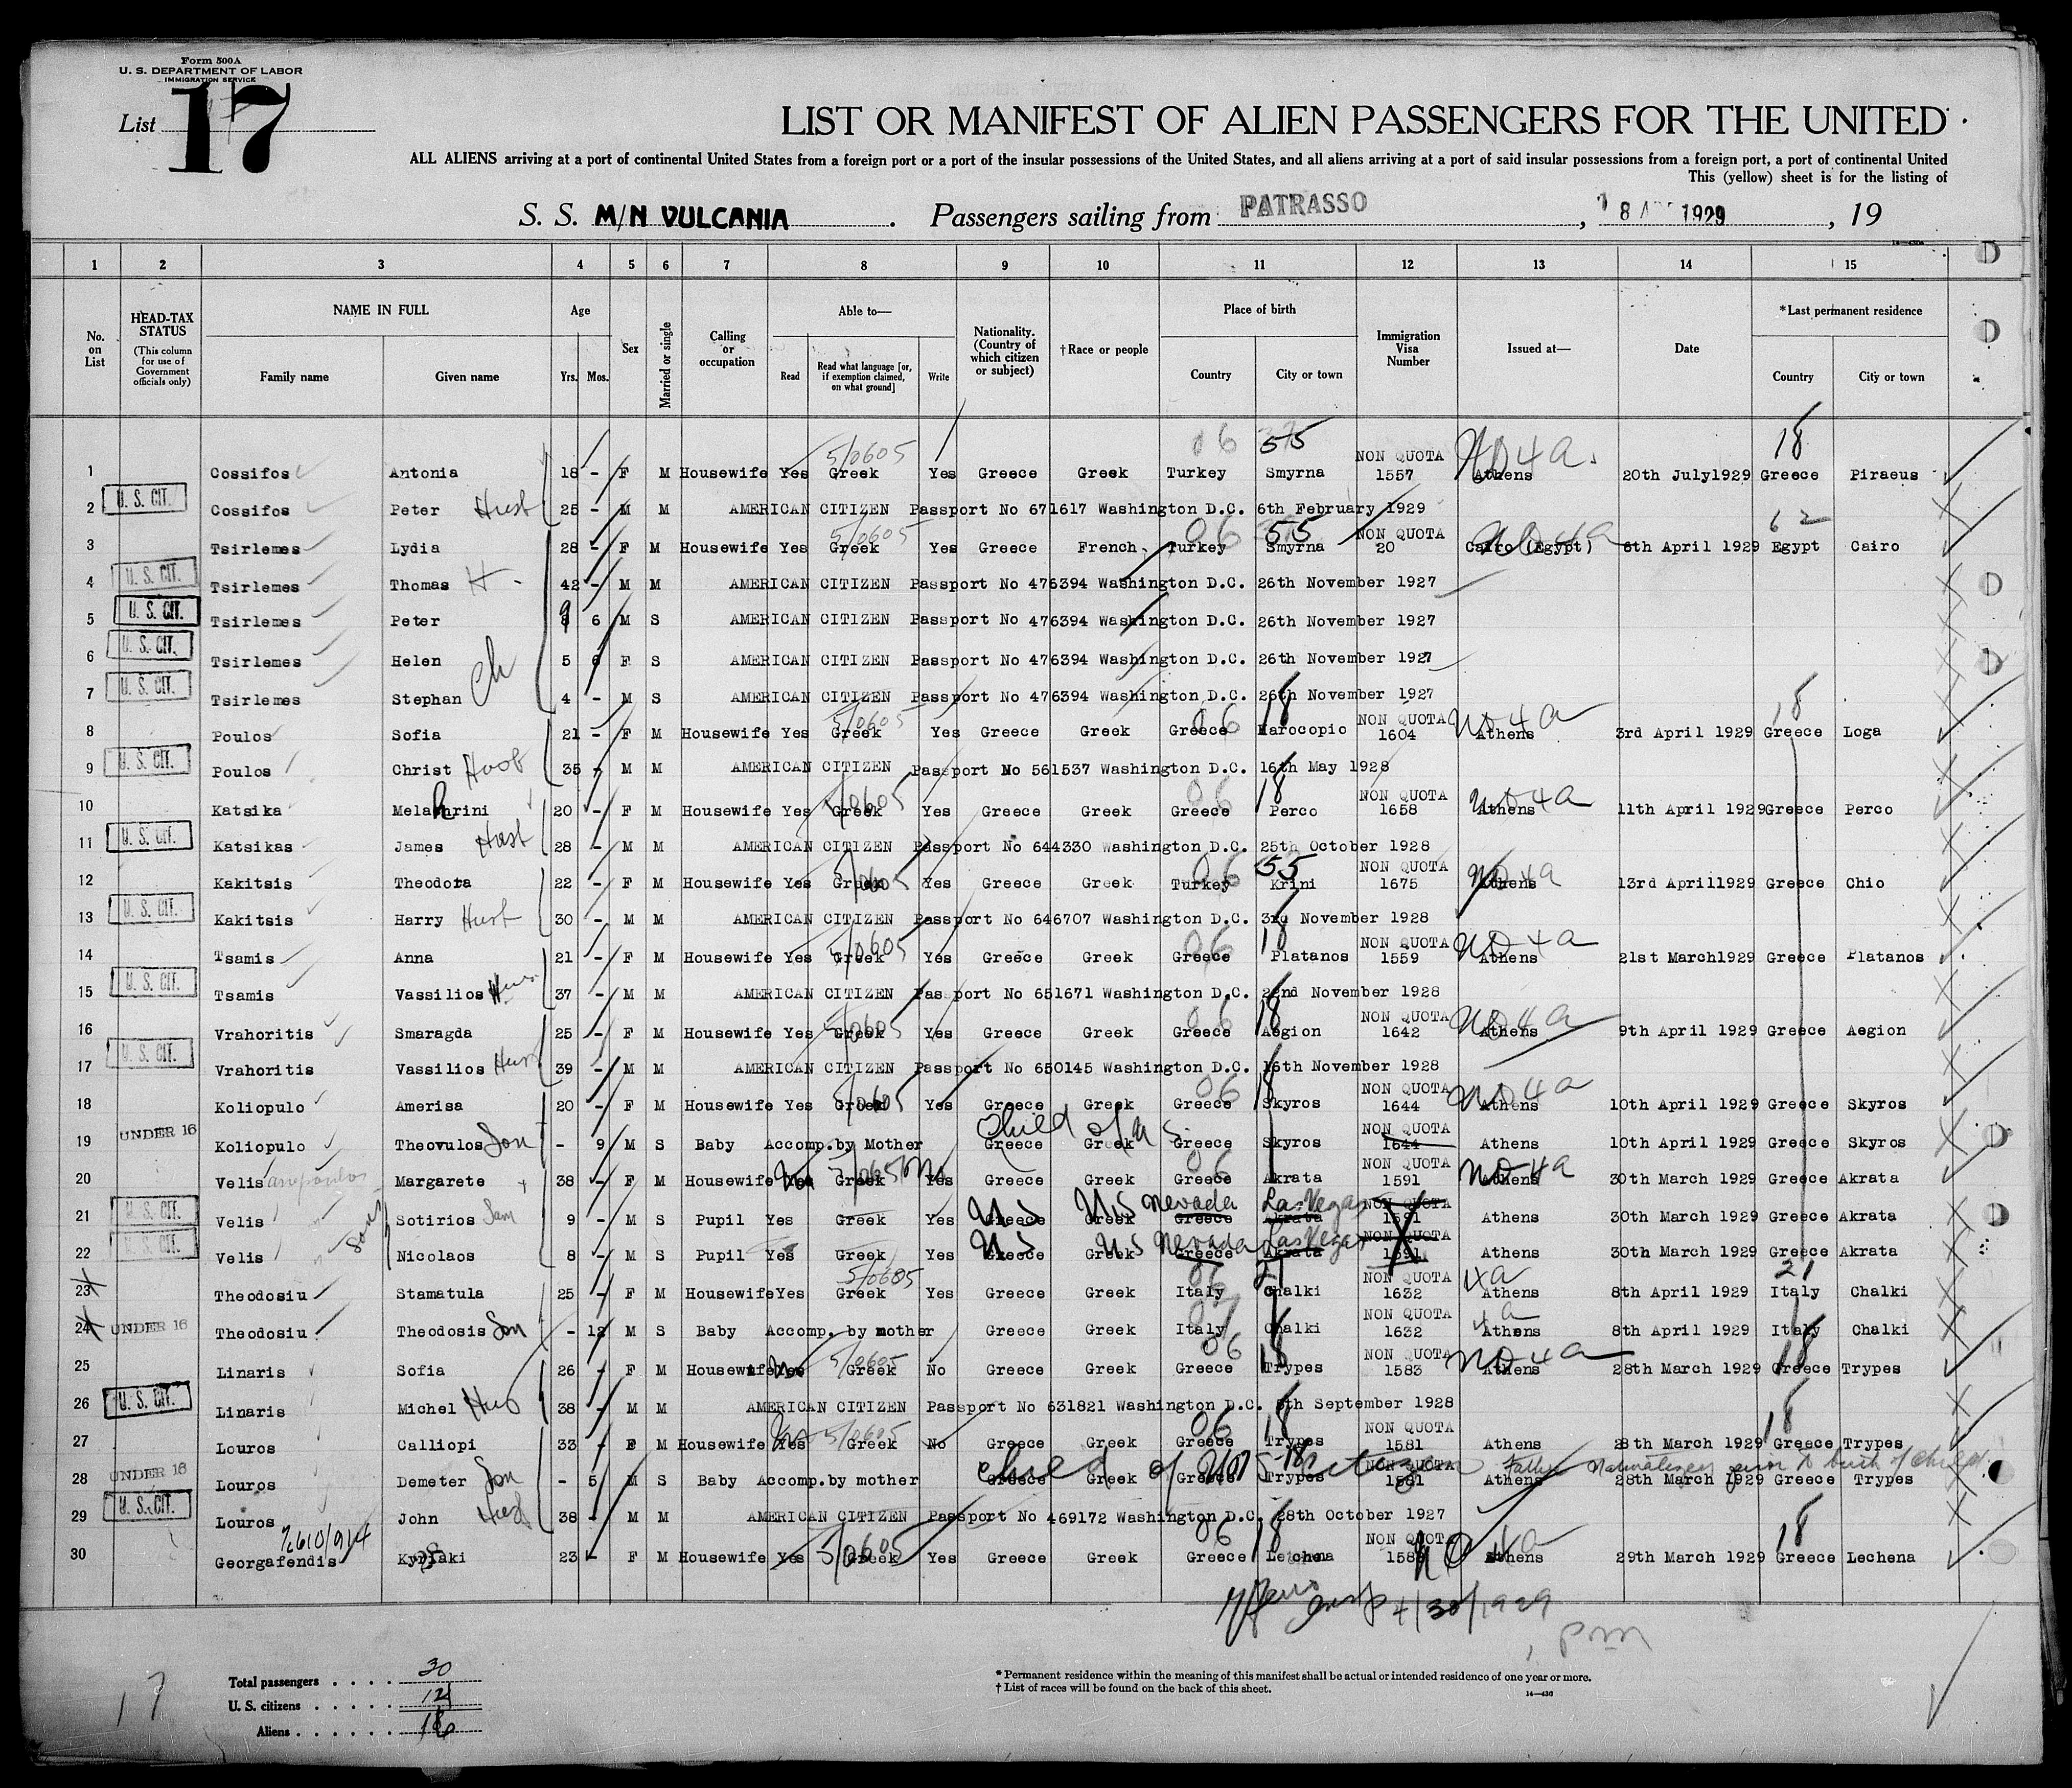 Form 500A
U. S. DEPARTMENT OF LABOR
IMMIGRATION SERVICE
List 17
LIST OR MANIFEST OF ALIEN PASSENGERS FOR THE UNITED
ALL ALIENS arriving at a port of continental United States from a foreign port or a port of the insular possessions of the United States, and all aliens arriving at a port of said insular possessions from a foreign port, a port of continental United
This (yellow) sheet is for the listing of
S. S. M/N VULCANIA. Passengers sailing from PATRASSO, 1929, 19
1 2 3 4 5 6 7 8 9 10 11 12 13 14 15
No. on List
HEAD-TAX STATUS (This column for use of Government officials only)
NAME IN FULL Family name Given name
Age Yrs. Mos.
Sex
Married or single
Calling or occupation
Able to— Read Read what language [or, if exemption claimed, on what ground] Write
Nationality. (Country of which citizen or subject)
†Race or people
Place of birth Country City or town
Immigration Visa Number
Issued at—
Date
*Last permanent residence Country City or town
1 Cossifos Antonia 18 - F M Housewife Yes 5/0605 Greek Yes Greece Greek Turkey 06 55 Smyrna NON QUOTA 1557 Athens 20th July1929 18 Greece Piraeus
2 U. S. CIT. Cossifos Peter Husb 25 - M M AMERICAN CITIZEN Passport No 671617 Washington D.C. 6th February 1929
3 Tsirlemes Lydia 28 - F M Housewife Yes 5/0605 Greek Yes Greece French Turkey 06 55 Smyrna NON QUOTA 20 Cairo (Egypt) 6th April 1929 62 Egypt Cairo
4 U. S. CIT. Tsirlemes Thomas H - 42 - M M AMERICAN CITIZEN Passport No 476394 Washington D.C. 26th November 1927
5 U. S. CIT. Tsirlemes Peter 9 6 M S AMERICAN CITIZEN Passport No 476394 Washington D.C. 26th November 1927
6 U. S. CIT. Tsirlemes Helen 5 6 F S AMERICAN CITIZEN Passport No 476394 Washington D.C. 26th November 1927
7 U. S. CIT. Tsirlemes Stephan Ch 4 - M S AMERICAN CITIZEN Passport No 476394 Washington D.C. 26th November 1927
8 Poulos Sofia 21 - F M Housewife Yes 5/0605 Greek Yes Greece Greek Greece 06 18 Harocopio NON QUOTA 1604 Athens 3rd April 1929 18 Greece Loga
9 U. S. CIT. Poulos Christ 35 - M M AMERICAN CITIZEN Passport No 561537 Washington D.C. 16th May 1928
10 Katsika Melahrini 20 - F M Housewife Yes 5/0605 Greek Yes Greece Greek Greece 06 18 Perco NON QUOTA 1658 Athens 11th April 1929 Greece Perco
11 U. S. CIT. Katsikas James Husb 28 - M M AMERICAN CITIZEN Passport No 644330 Washington D.C. 25th October 1928
12 Kakitsis Theodora 22 - F M Housewife Yes 5/0605 Greek Yes Greece Greek Turkey 06 55 Krini NON QUOTA 1675 Athens 13rd April1929 Greece Chio
13 U. S. CIT. Kakitsis Harry Husb 30 - M M AMERICAN CITIZEN Passport No 646707 Washington D.C. 3rd November 1928
14 Tsamis Anna 21 - F M Housewife Yes 5/0605 Greek Yes Greece Greek Greece 06 18 Platanos NON QUOTA 1559 Athens 21st March1929 Greece Platanos
15 U. S. CIT. Tsamis Vassilios 37 - M M AMERICAN CITIZEN Passport No 651671 Washington D.C. 22nd November 1928
16 Vrahoritis Smaragda 25 - F M Housewife Yes 5/0605 Greek Yes Greece Greek Greece 06 18 Aegion NON QUOTA 1642 Athens 9th April 1929 Greece Aegion
17 U. S. CIT. Vrahoritis Vassilios 39 - M M AMERICAN CITIZEN Passport No 650145 Washington D.C. 16th November 1928
18 Koliopulo Amerisa 20 - F M Housewife Yes 5/0605 Greek Yes Greece Greek Greece 06 18 Skyros NON QUOTA 1644 Athens 10th April 1929 Greece Skyros
19 UNDER 16 Koliopulo Theovulos Son - 9 M S Baby Accomp.by Mother Child of U S Greece Greek Greece Skyros NON QUOTA 1644 Athens 10th April 1929 Greece Skyros
20 Velis Margarete 38 - F M Housewife Yes 5/0605 Greek Yes Greece Greek Greece 06 Akrata NON QUOTA 1591 Athens 30th March 1929 Greece Akrata
21 U. S. CIT. Velis Sotirios Sam Sons 9 - M S Pupil Yes Greek Yes Greece US Greek US Greece Nevada Akrata Las Vegas NON QUOTA 1591 Athens 30th March 1929 Greece Akrata
22 U. S. CIT. Velis Nicolaos 8 - M S Pupil Yes Greek Yes Greece US Greek US Greece Nevada Akrata Las Vegas NON QUOTA 1591 Athens 30th March 1929 Greece Akrata
23 Theodosiu Stamatula 25 - F M Housewife Yes Greek Yes Greece Greek Italy 21 Chalki NON QUOTA 1632 4a Athens 8th April 1929 21 Italy Chalki
24 UNDER 16 Theodosiu Theodosis Son - 12 M S Baby Accomp. by mother Greece Greek Italy Chalki NON QUOTA 1632 4a Athens 8th April 1929 Italy Chalki
25 Linaris Sofia 26 - F M Housewife Yes No 5/0605 Greek No Greece Greek Greece 06 18 Trypes NON QUOTA 1583 Athens 28th March 1929 18 Greece Trypes
26 U. S. CIT. Linaris Michel Hus 38 - M M AMERICAN CITIZEN Passport No 631821 Washington D.C. 5th September 1928
27 Louros Calliopi 33 - F M Housewife Yes No 5/0605 Greek No Greece Greek Greece 06 18 Trypes NON QUOTA 1581 Athens 28th March 1929 18 Greece Trypes
28 UNDER 16 Louros Demeter Son - 5 M S Baby Accomp.by mother Child of US citizen Father Naturalized prior to birth of child Greece Greek Greece Trypes NON QUOTA 1581 Athens 28th March 1929 Greece Trypes
29 U. S. CIT. Louros John 38 - M M AMERICAN CITIZEN Passport No 469172 Washington D.C. 28th October 1927
30 Georgafendis Kyriaki 23 - F M Housewife Yes 5/0605 Greek Yes Greece Greek Greece 06 18 Lechena NON QUOTA Athens 29th March 1929 18 Greece Lechena
4/30/1929
pm
Total passengers . . . . 30
U. S. citizens . . . . .
Aliens . . . . . .
17
* Permanent residence within the meaning of this manifest shall be actual or intended residence of one year or more.
† List of races will be found on the back of this sheet.
14—430